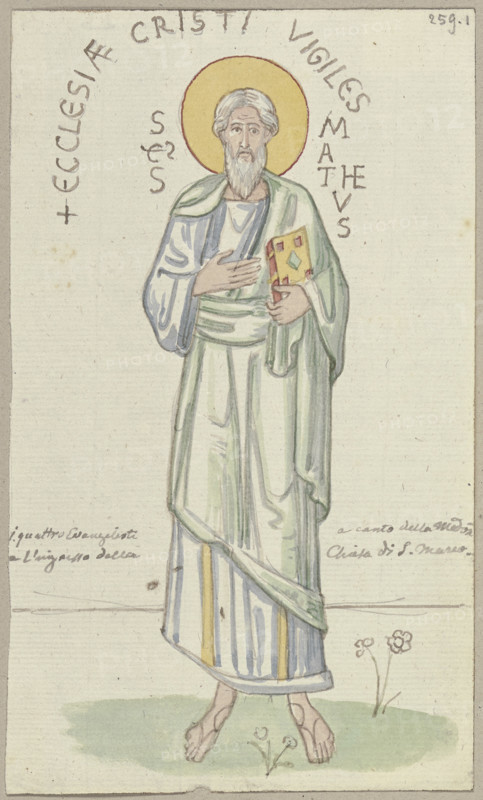 259.1
+ ECCLESIÆ CRISTI VIGILES
S
S
MATHEVS
i quattro Evangelisti
a canto della
a L'ingresso della
Chiesa di S. Marco